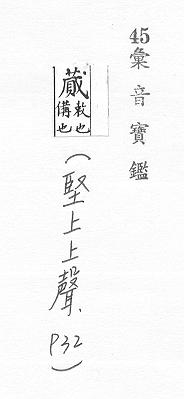 45彙音寶鑑
蕆
敕也
備也
(堅上上聲、P32)